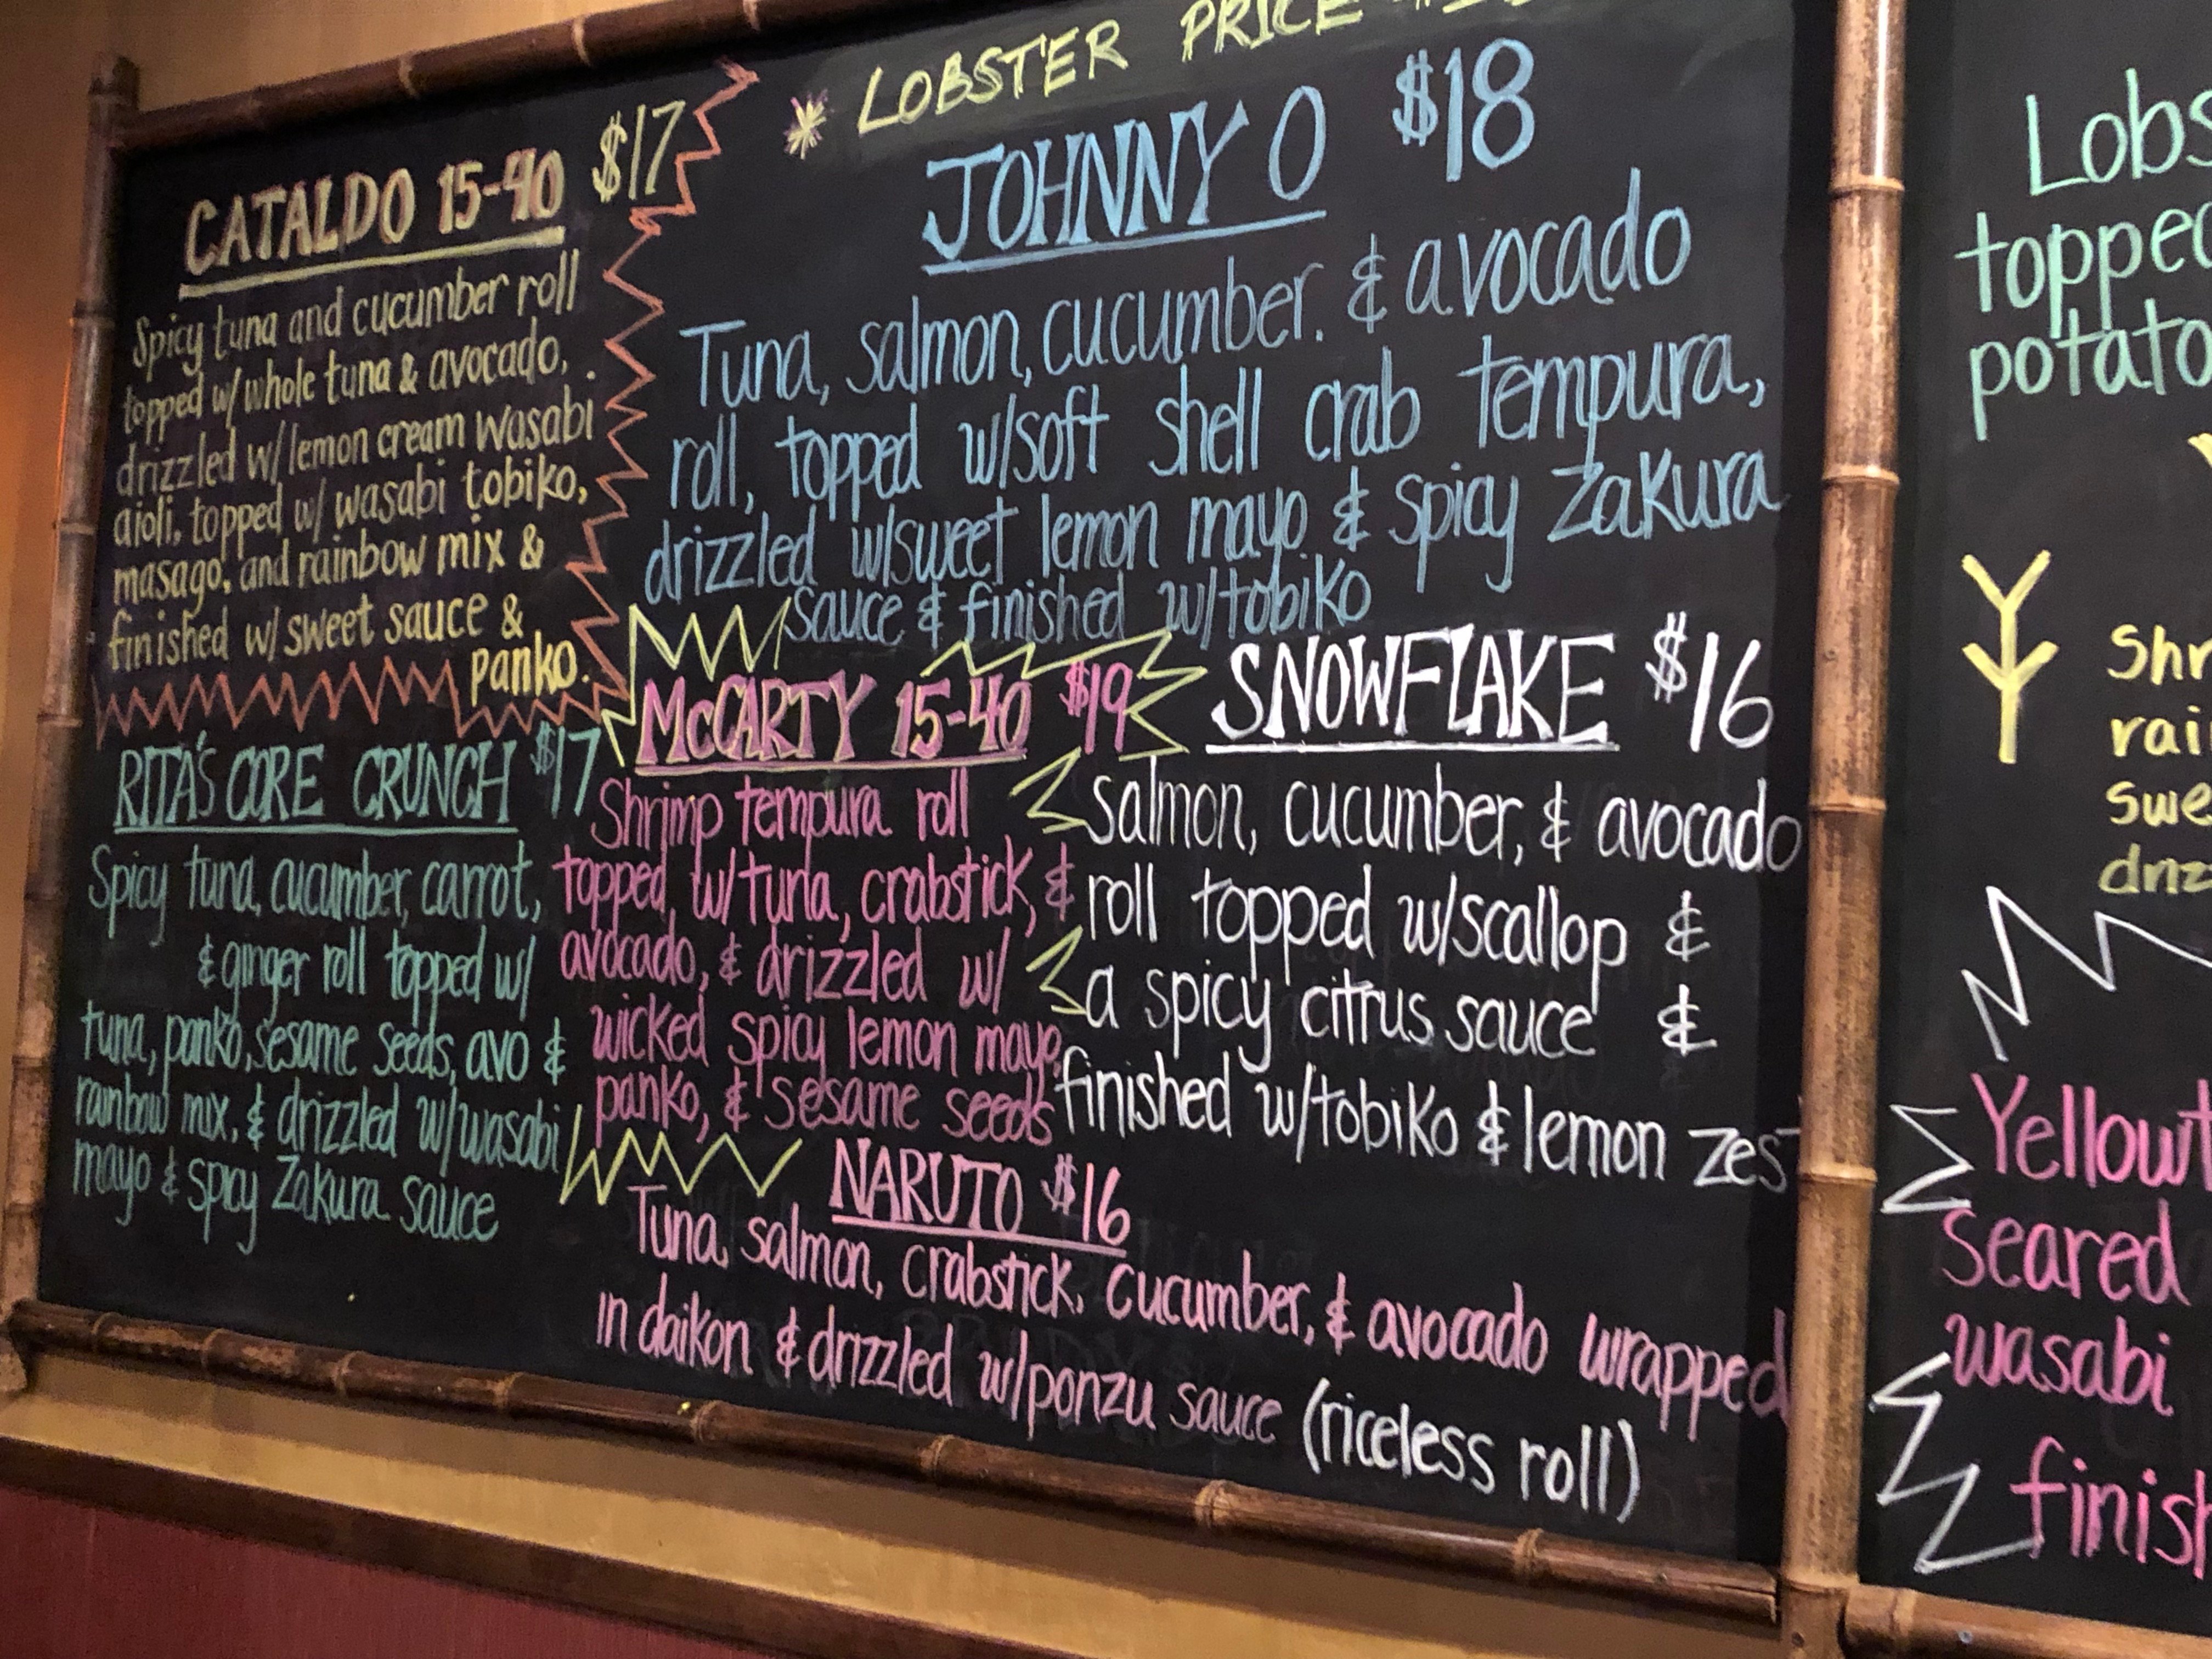 * LOBSTER PRICE
CATALDO 15-40 $17
Spicy tuna and cucumber roll
topped w/ whole tuna & avocado,
drizzled w/ lemon cream wasabi
aioli, topped w/ wasabi tobiko,
masago, and rainbow mix &
finished w/ sweet sauce &
panko.
JOHNNY O $18
Tuna, salmon, cucumber, & avocado
roll, topped w/soft shell crab tempura,
drizzled w/sweet lemon mayo & spicy Zakura
sauce & finished w/tobiko
RITA'S CORE CRUNCH $17
Spicy tuna, cucumber, carrot,
& ginger roll topped w/
tuna, panko, sesame seeds, avo &
rainbow mix, & drizzled w/wasabi
mayo & spicy Zakura sauce
McCARTY 15-40 $19
Shrimp tempura roll
topped w/tuna, crabstick, &
avocado, & drizzled w/
wicked spicy lemon mayo,
panko, & sesame seeds
SNOWFLAKE $16
Salmon, cucumber, & avocado
roll topped w/scallop &
a spicy citrus sauce &
finished w/tobiko & lemon zest
NARUTO $16
Tuna, salmon, crabstick, cucumber, & avocado wrapped
in daikon & drizzled w/ponzu sauce (riceless roll)
Lobs
topped
potato
Shr
rai
swe
driz
Yellowt
seared
wasabi
finish